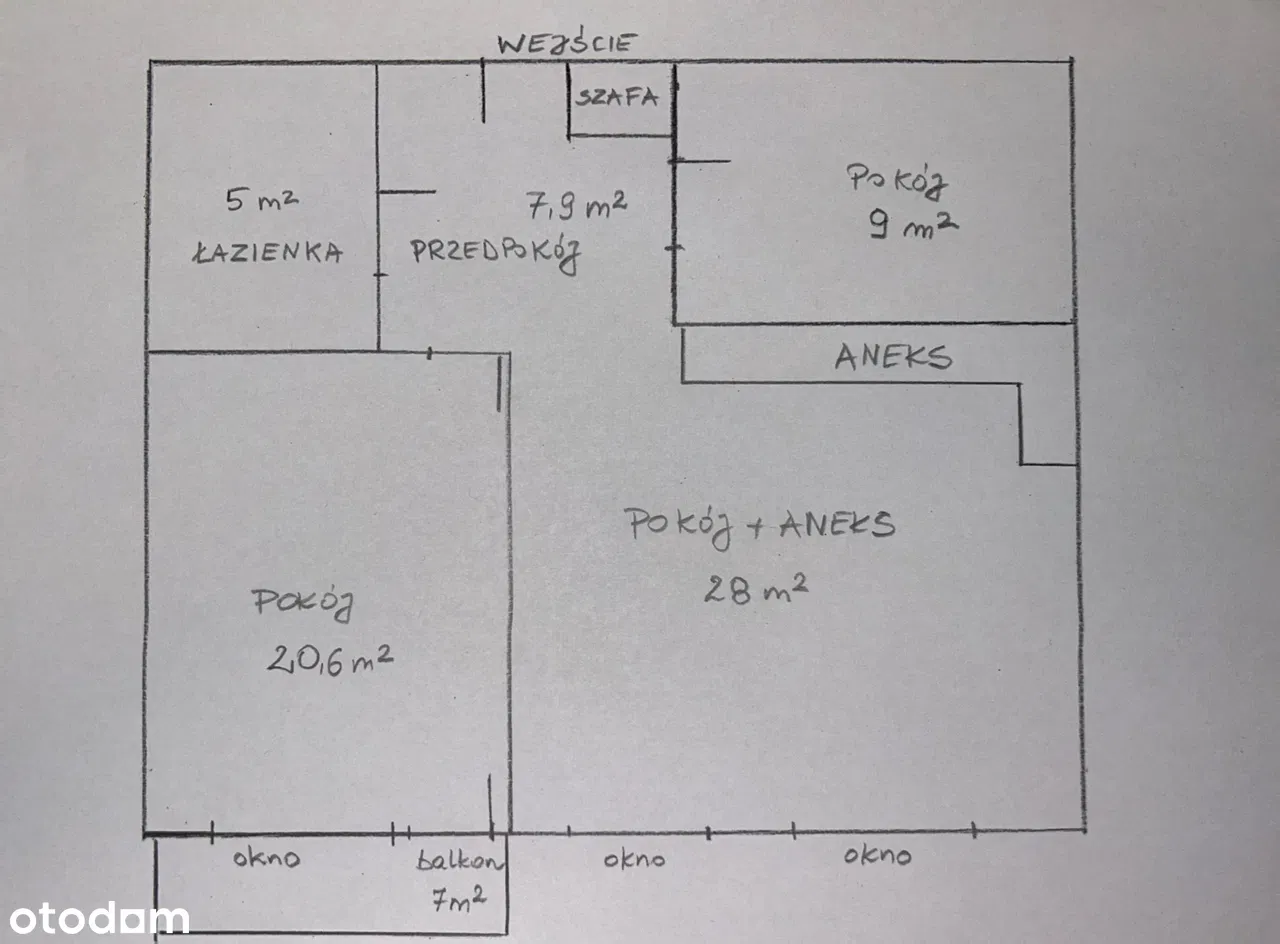 WEJŚCIE
SZAFA
5 m²
ŁAZIENKA
7,9 m²
PRZEDPOKÓJ
POKÓJ
9 m²
ANEKS
POKÓJ + ANEKS
28 m²
POKÓJ
20,6 m²
okno
balkon
7m²
okno
okno
otodom